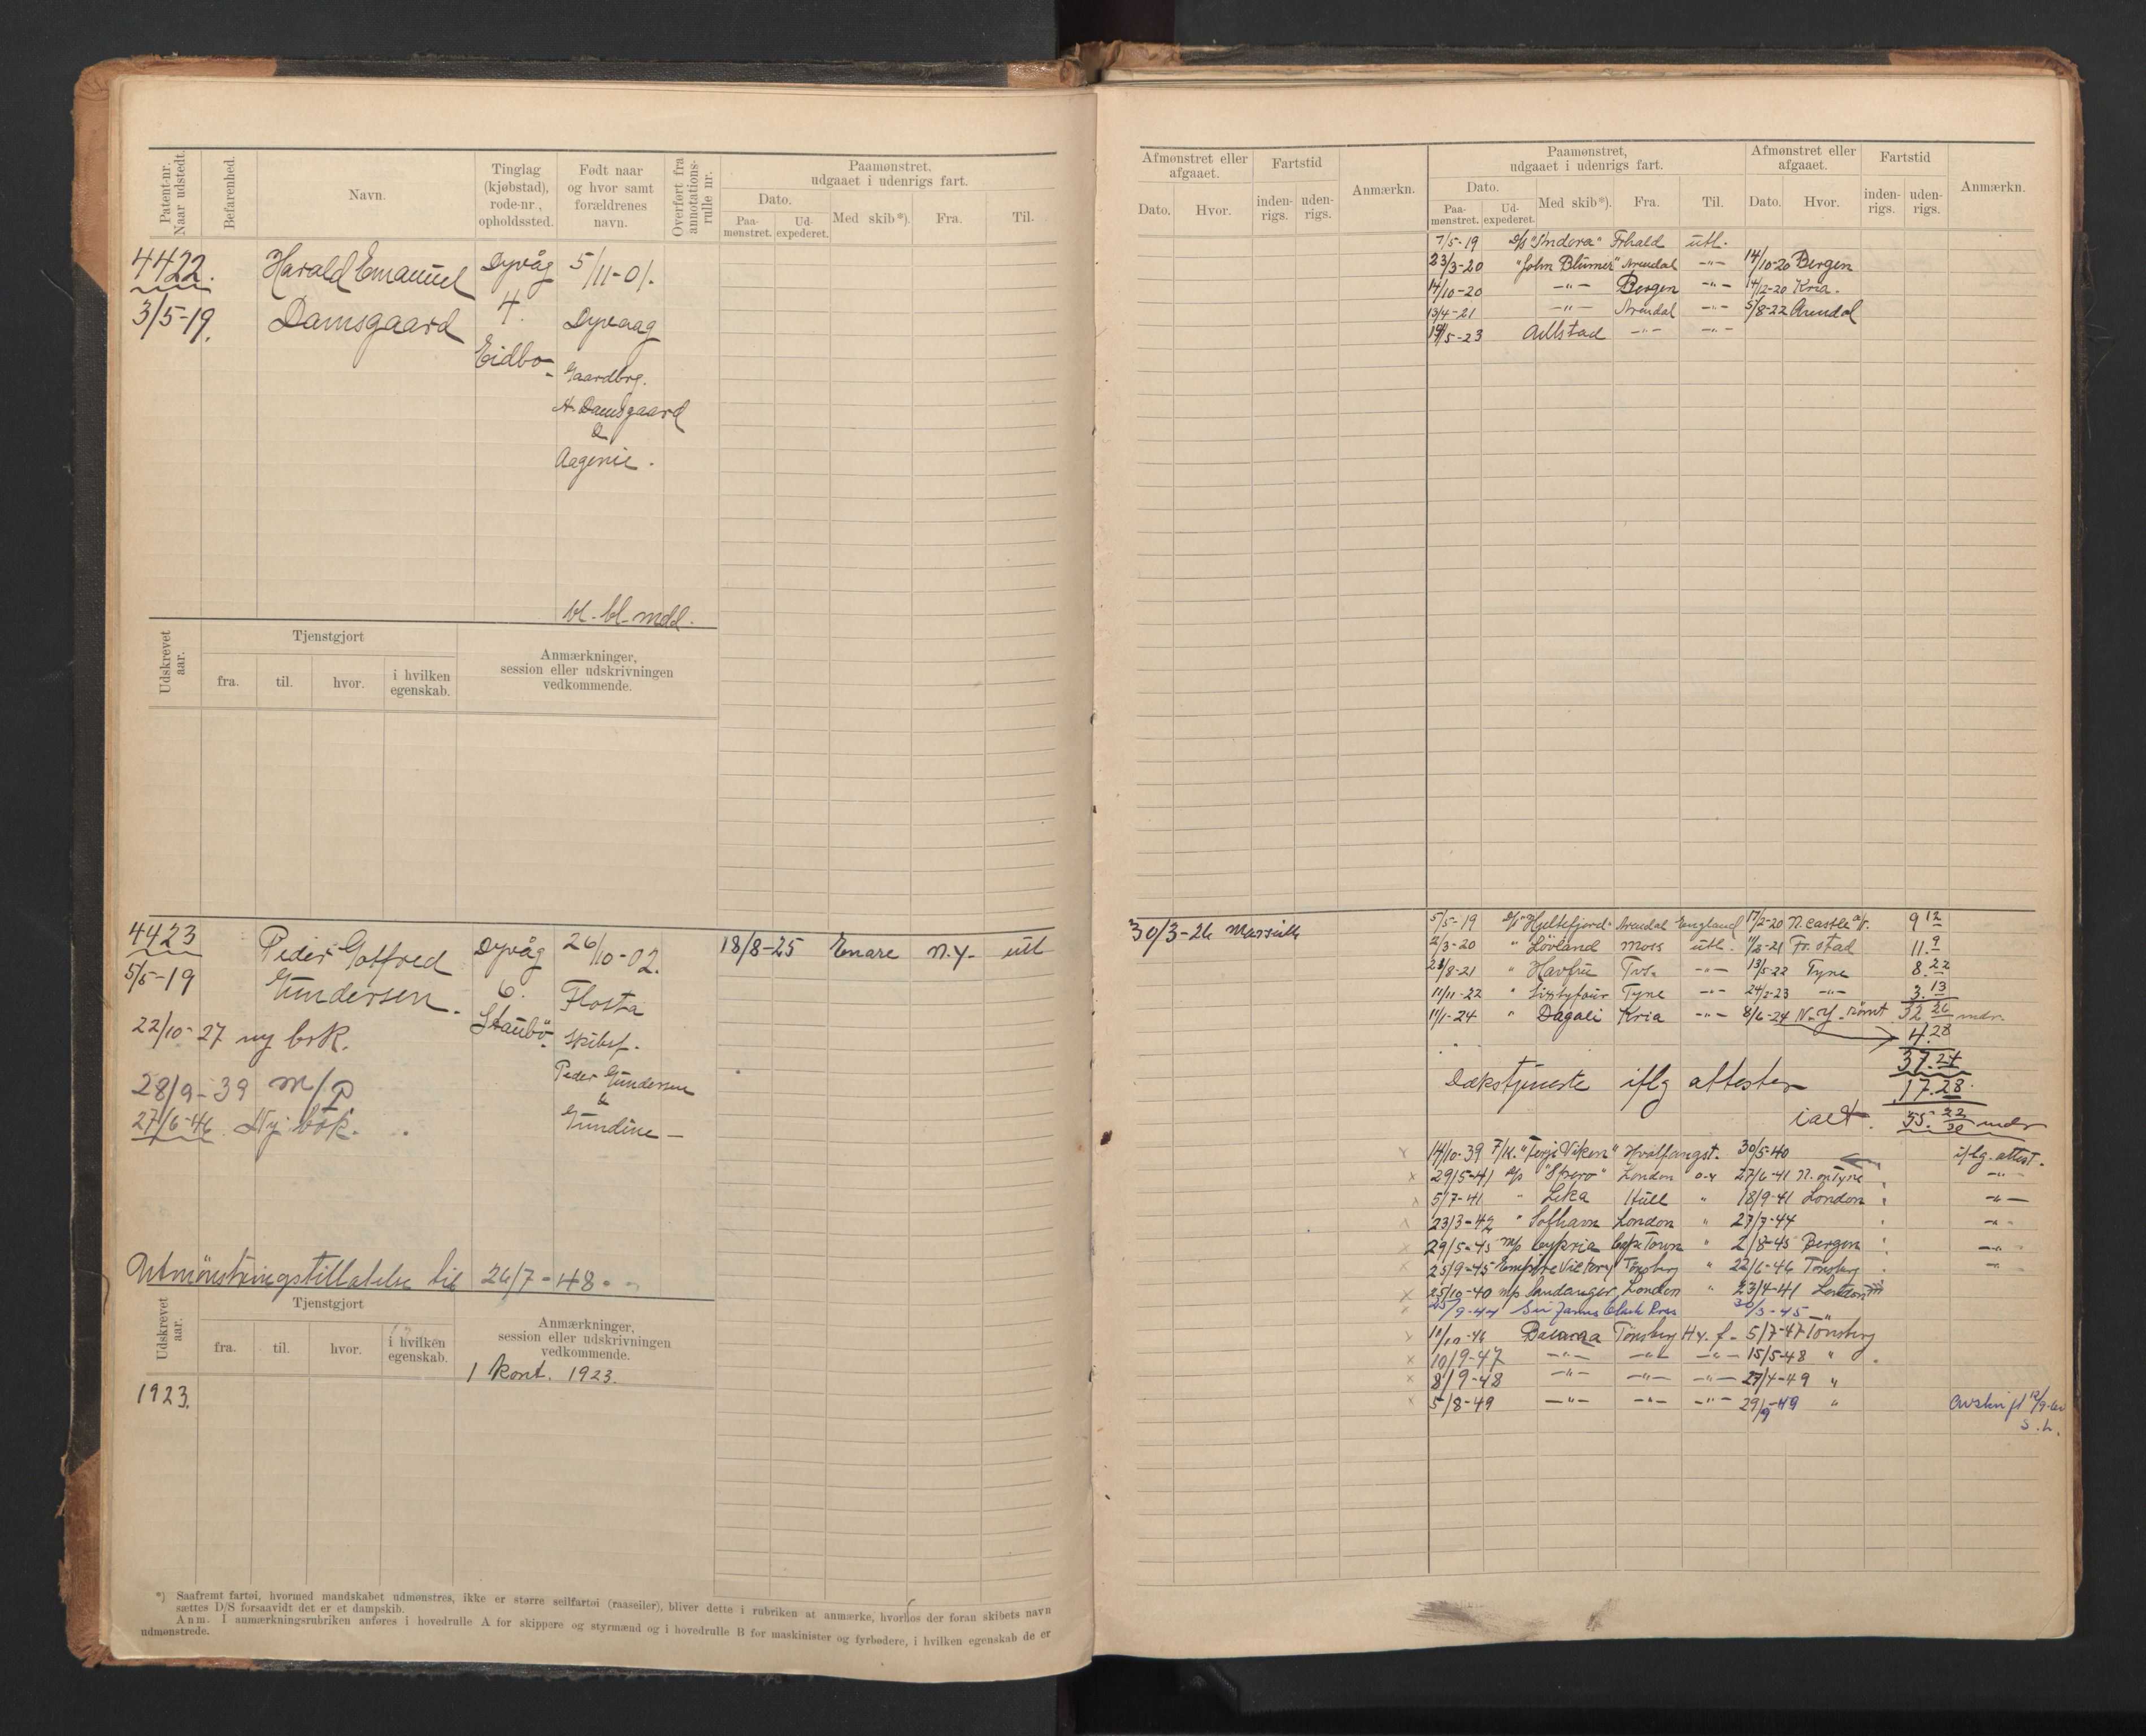 Patent-nr. Naar udstedt.
Befarenhed.
Navn.
Tinglag (kjøbstad), rode-nr., opholdssted.
Født naar og hvor samt forældrenes navn.
Overført fra annotations-rulle nr.
Paamønstret, udgaaet i udenrigs fart.
Dato.
Paa-mønstret. Ud-expederet.
Med skib*). Fra. Til.
4422.
3/5-19.
Harald Emanuel
Damsgaard
Dyvåg
4.
Eidbo
5/11-01.
Dyvaag
Gaardbrg.
A. Damsgaard
&
Aagenie.
bl. bl. mdd.
Udskrevet aar.
Tjenstgjort
fra. til. hvor. i hvilken egenskab.
Anmærkninger, session eller udskrivningen vedkommende.
4423
5/5-19
22/10-27 ny bok.
28/9-39 M/P
27/6-46. Ny bok.
Peder Gotfred
Gundersen.
Dyvåg
6.
Staubö
26/10-02.
Flosta
Skibsf.
Peder Gundersen
&
Gundine
18/8-25 Enare N.Y. utl
Utmönstringstillatelse til 26/7-48.
Udskrevet aar.
Tjenstgjort
fra. til. hvor. i hvilken egenskab.
Anmærkninger, session eller udskrivningen vedkommende.
1 kont. 1923.
1923.
*) Saafremt fartøi, hvormed mandskabet udmønstres, ikke er større seilfartøi (raaseiler), bliver dette i rubriken at anmærke, hvorhos der foran skibets navn
sættes D/S forsaavidt det er et dampskib.
Anm. I anmærkningsrubriken anføres i hovedrulle A for skippere og styrmænd og i hovedrulle B for maskinister og fyrbødere, i hvilken egenskab de er
udmønstrede.
Afmønstret eller afgaaet.
Dato. Hvor.
Fartstid
inden-rigs. uden-rigs.
Anmærkn.
Paamønstret, udgaaet i udenrigs fart.
Dato.
Paa-mønstret. Ud-expederet.
Med skib*). Fra. Til.
Afmønstret eller afgaaet.
Dato. Hvor.
Fartstid
inden-rigs. uden-rigs.
Anmærkn.
7/5-19 D/S "Sndora" Frhald utl.
23/3-20 "John Blumer" Arendal -"- 14/10-20 Bergen
14/10-20 -"- Bergen -"- 14/12-20 Kria.
13/4-21 -"- Arendal -"- 5/8-22 Arendal
19/5-23 Adlstad -"- -"-
30/3-26 Marseille
5/5-19 D/S "Hjeltefjord" Arendal England 17/2-20 N.castle 9 12
2/3-20 " Lövland Moss utl. 11/2-21 Fr.stad 11. 9
21/8-21 " Havfru Tvs. -"- 13/5-22 Tyne 8. 22
11/11-22 " Sixtyfour Tyne -"- 24/2-23 -"- 3. 13
11/1-24 " Dagali Kria -"- 8/6-24 N.Y. römt 32 26 mdr.
4.28
37.24
Dækstjeneste iflg attester 17.28
ialt. 55. 22/30 mdr
14/10-39 F/K. "Terje Viken" Hvalfangst. 30/5-40 iflg. attest.
29/5-41 D/S "Strero" London o-x 27/6-41 N. on Tyne -"-
5/7-41 " Leka Hull " 18/9-41 London -"-
23/3-42 " Solhavn London " 27/7-44 -"-
29/5-45 M/S Cypria Cape Town " 2/8-45 Bergen -"-
25/9-45 Empire Victory Tönsberg " 22/6-46 Tönsberg -"-
25/10-40 M/S Sandanger, London " 23/4-41 London
25/9-44 Sir James Clark Ross 30/3-45 -"-
11/10-46 Balaena Tönsberg Hv. f. 5/7-47 Tönsberg
10/9-47 -"- -"- -"- 15/5-48 "
8/9-48 -"- -"- -"- 27/4-49 "
5/8-49 -"- -"- -"- 29/9-49 "
Avskrift 12/9-60
S.H.